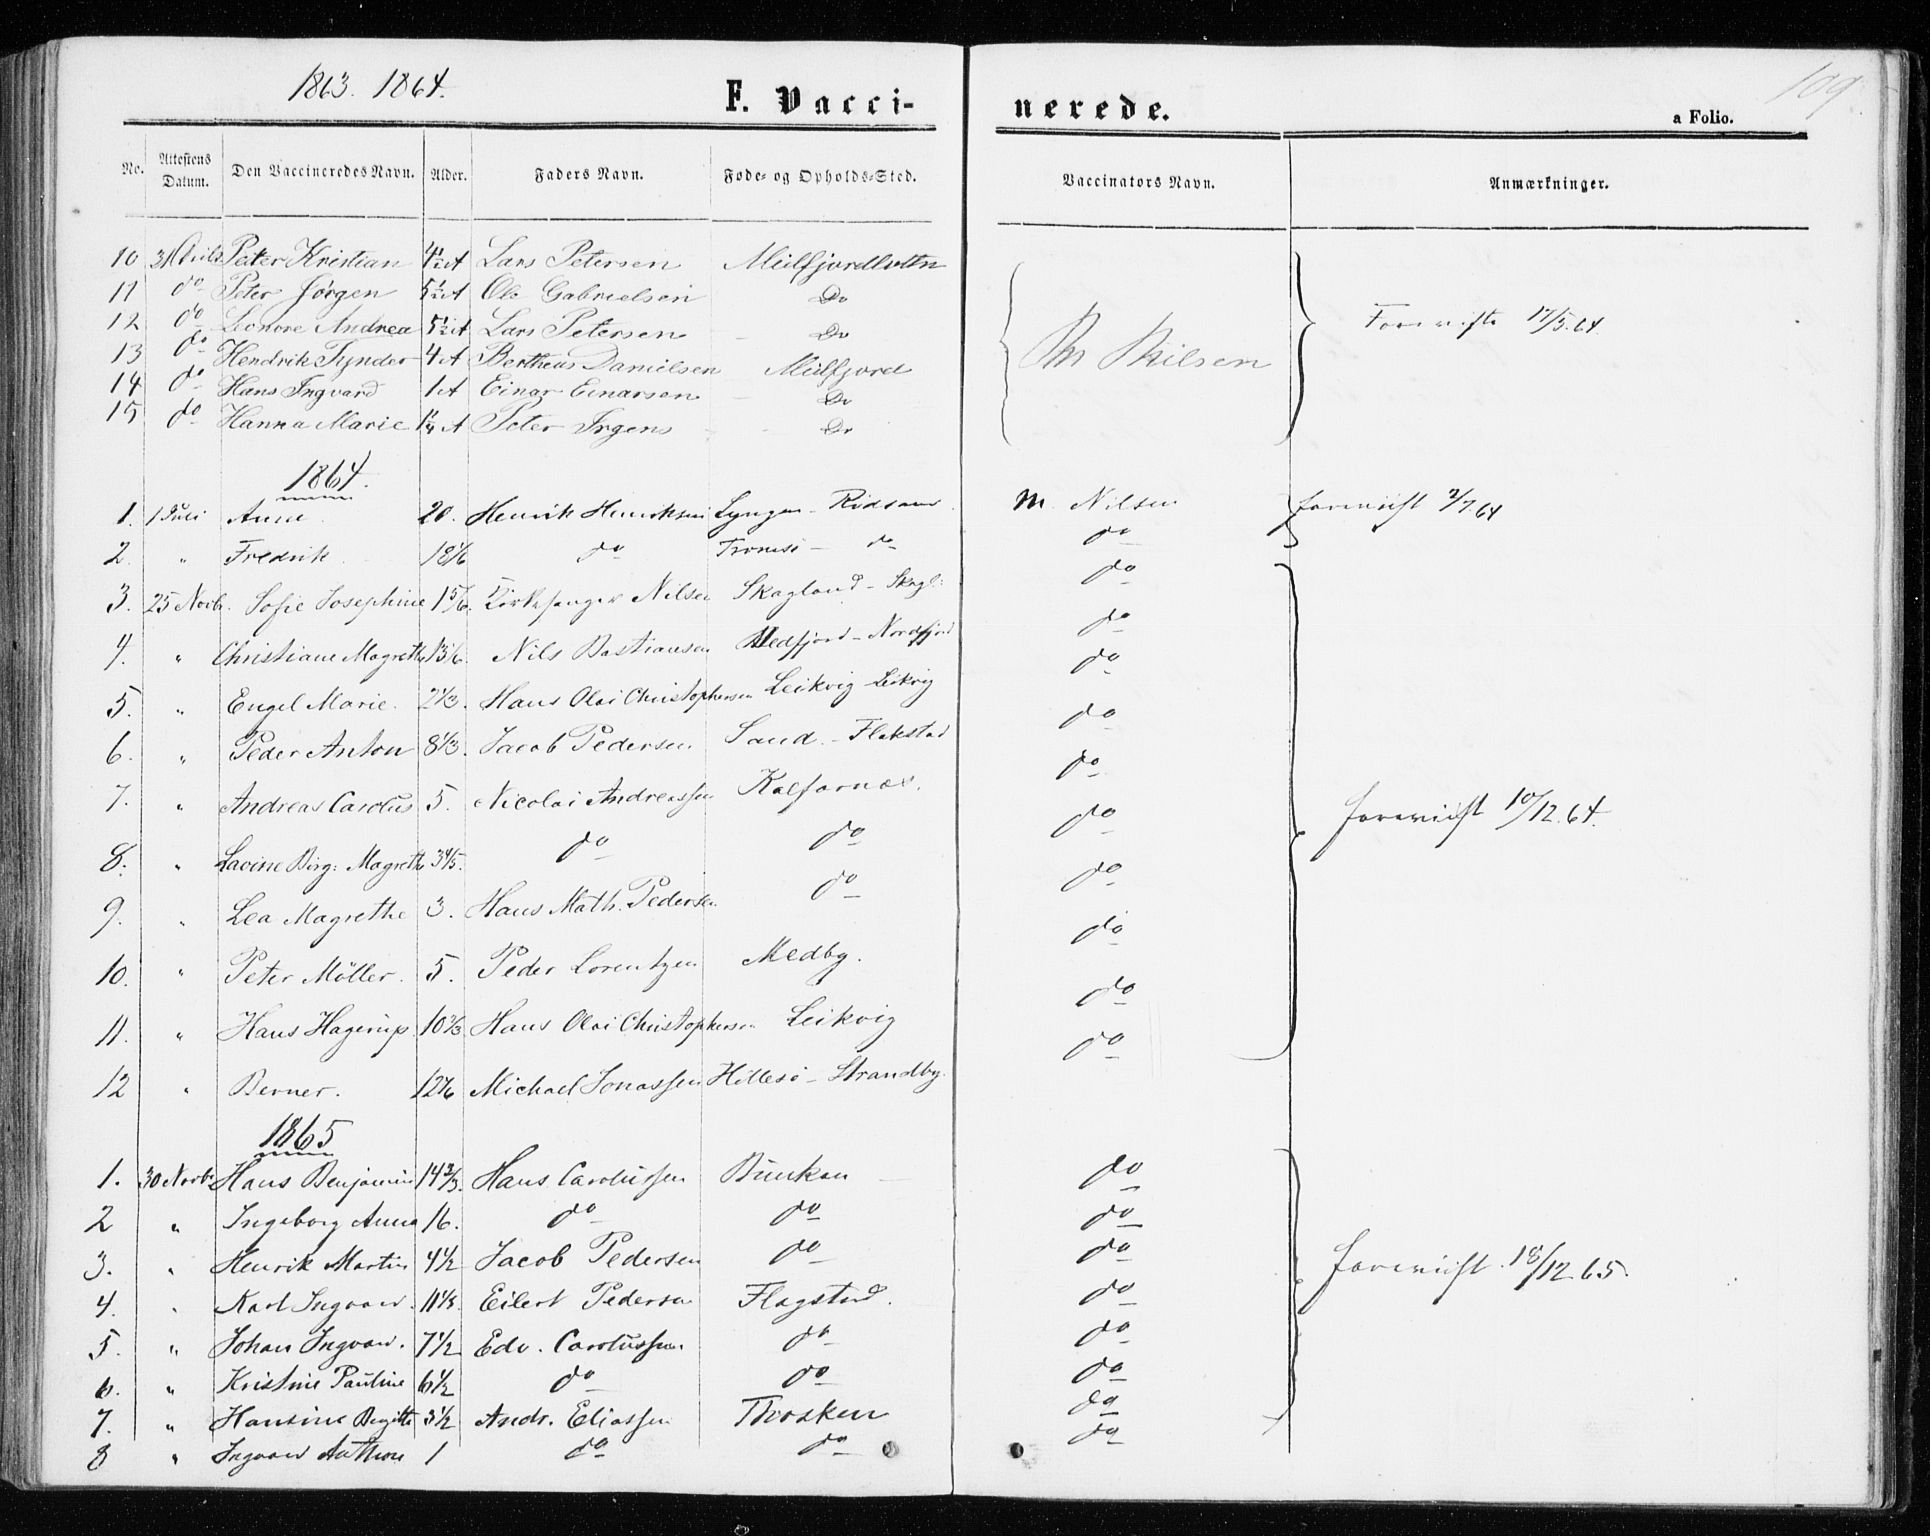 1863. 1864.
F. Vaccinerede.
109
a Folio.
No. Attestens Datum. Den Vaccineredes Navn. Alder. Faders Navn. Føde- og Opholds-Sted. Vaccinators Navn. Anmærkninger.
10 Peter Kristian 4½ A Lars Petersen
11 do Peter Jørgen 5½ A Ole Gabrielsen Do
12 do Leonore Andrea 5½ A Lars Petersen Do Forevist 17/5.64
13 do Hendrik Tynder 4 A Bertheus Danielsen Meilfjord
14 do Hans Ingvard 1 A Einar Einarsen Do
15 do Hanna Marie 1¼ A Peter Irgens Do
1864.
1. 1 Juli Anne 20. Henrik Henriksen Lyngen - Rødsand M. Nilsen forevist 2/7 64
2. " Fredrik 18 1/6 do Tromsö - do do
3. 25 Novb. Sofie Josephine 1 5/6. Kirkesanger Nilsen Skagland - Skagl: do
4. " Christiane Magrethe 13/6. Nils Bastiansen Medfjord - Nordfjord do
5. " Engel Marie. 2 1/3. Hans Olai Christophersen Leikvig - Leikvig do
6. " Peder Anton 8 1/3. Jacob Pedersen Sand. - Flakstad do
7. " Andreas Carolus 5. Nicolai Andreassen Kalfarnæs. do forevist 10/12.64.
8. " Lavine Birg: Magrethe 3 4/5. do do do
9. " Lea Magrethe 3. Hans Math. Pedersen do do
10. " Peter Möller. 5. Peder Lorentzen Medby. do
11. " Hans Hagerup 10 2/3 Hans Olai Christophersen Leikvig do
12 " Berner. 12 1/6 Michael Jonassen Hillesö - Strandby. do
1865
1. 30 Novbr Hans Benjamin 14 2/3. Hans Carolussen Bunkan do
2 " Ingeborg Anna 16. do do do
3. " Henrik Martin 4 1/2 Jacob Pedersen do do forevist 18/12 65.
4. " Karl Ingvar. 11 1/3. Eilert Pedersen Flagstad. do
5. " Johan Ingvar. 7 1/2 Edv. Carolussen do do
6. " Kristine Pauline 6 1/2 do do do
7. " Hansine Birgitte 3 1/2 Andr. Eliassen Thorsken do
8 " Ingvar Anthon 1 do do do